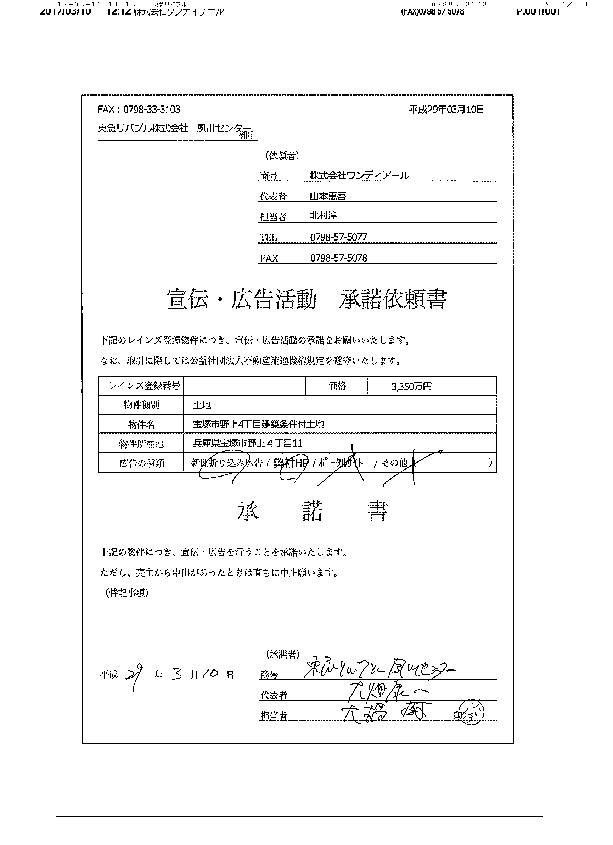 2017/03/10 12:12 株式会社ワンディアール (FAX)0798575078 P.001/001
FAX：0798-33-3103 平成29年03月10日
東急リバブル株式会社 夙川センター
御中
（依頼者）
商号 株式会社ワンディアール
代表者
担当者 北村淳
TEL 0798-57-5077
FAX 0798-57-5078
宣伝・広告活動 承諾依頼書
下記のレインズ登録物件につき、宣伝・広告活動の承諾をお願いいたします。
なお、取引に際しては公益社団法人不動産流通機構規定を遵守いたします。
レインズ登録番号 価格 3,350万円
物件種別 土地
物件名 宝塚市野上4丁目建築条件付土地
物件所在地 兵庫県宝塚市野上4丁目11
広告の種類 新聞折り込み広告 / 弊社HP / ポータルサイト / その他（ ）
承 諾 書
上記の物件につき、宣伝・広告を行うことを承諾いたします。
ただし、売主から申出があったときは直ちに中止願います。
（特記事項）
（承諾者）
平成 29 年 3 月 10 日 商号
代表者
担当者